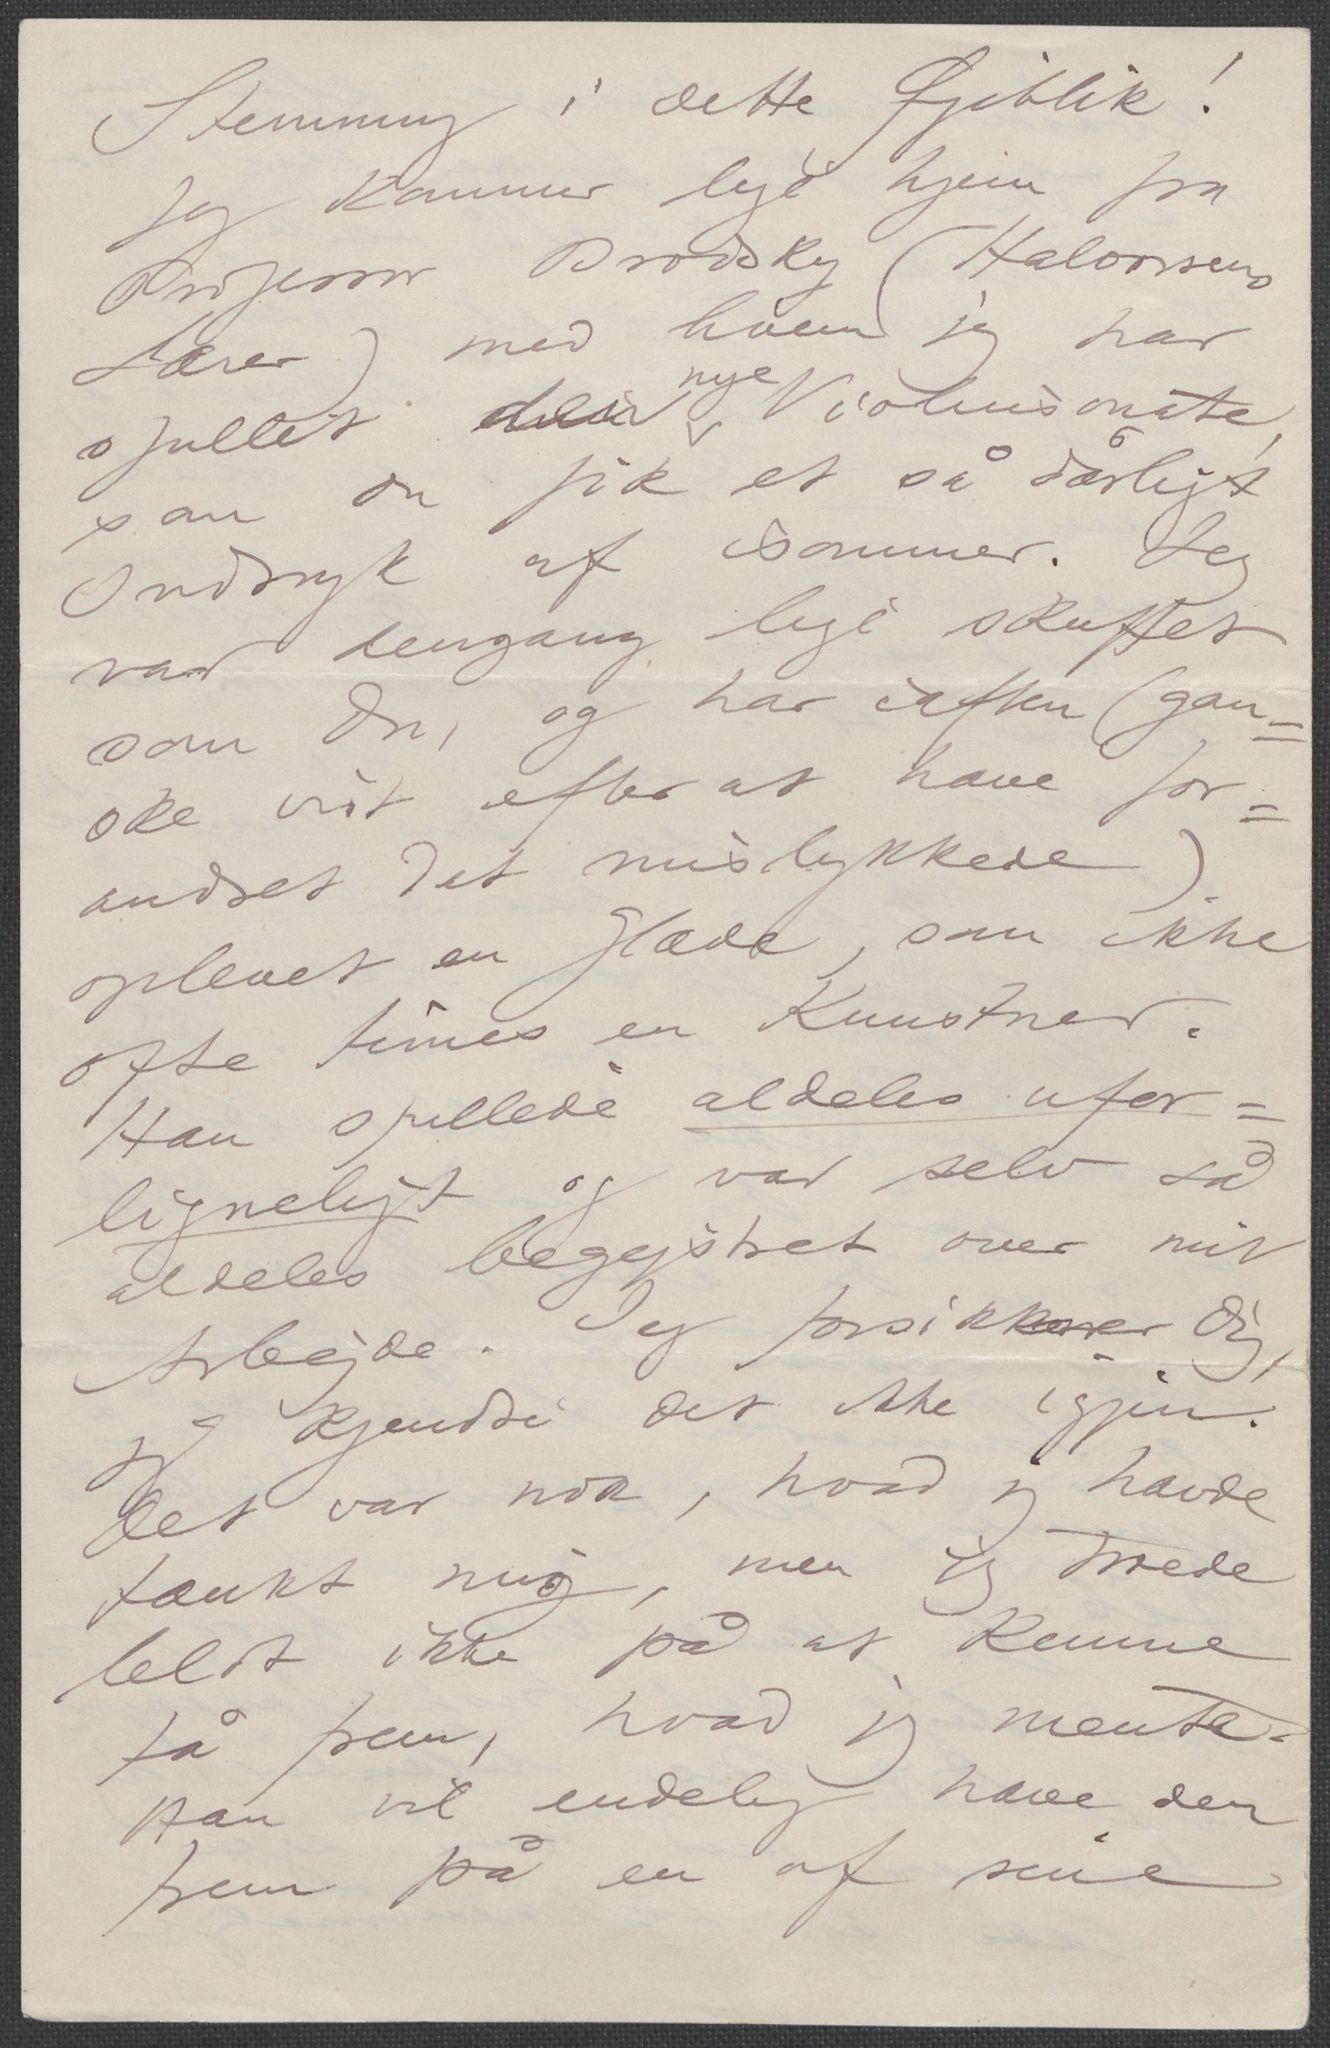 Stemning i dette Øjeblik!
Jeg kommer lige hjem fra
Professor Brodsky (Halvorsens
Lærer) med hvem jeg har
spillet den nye Violinsonate,
som du fik et så dårligt
Indtryk af isommer. Jeg
var dengang lige skuffet
som Du, og har iaften (gan=
ske vist efter at have for=
andret det mislykkede)
oplevet en Glæde, som ikke
ofte times en Kunstner.
Han spillede aldeles ufor=
ligneligt og var selv så
aldeles begejstret over mit
Arbejde. Jeg forsikkrer Dig,
jeg kjendte det ikke igjen.
Det var nok, hvad jeg havde
tænkt mig, men jeg troede
heldt ikke på at kunne
få frem, hvad jeg mente.
Han vil endelig have den
frem på en af sine